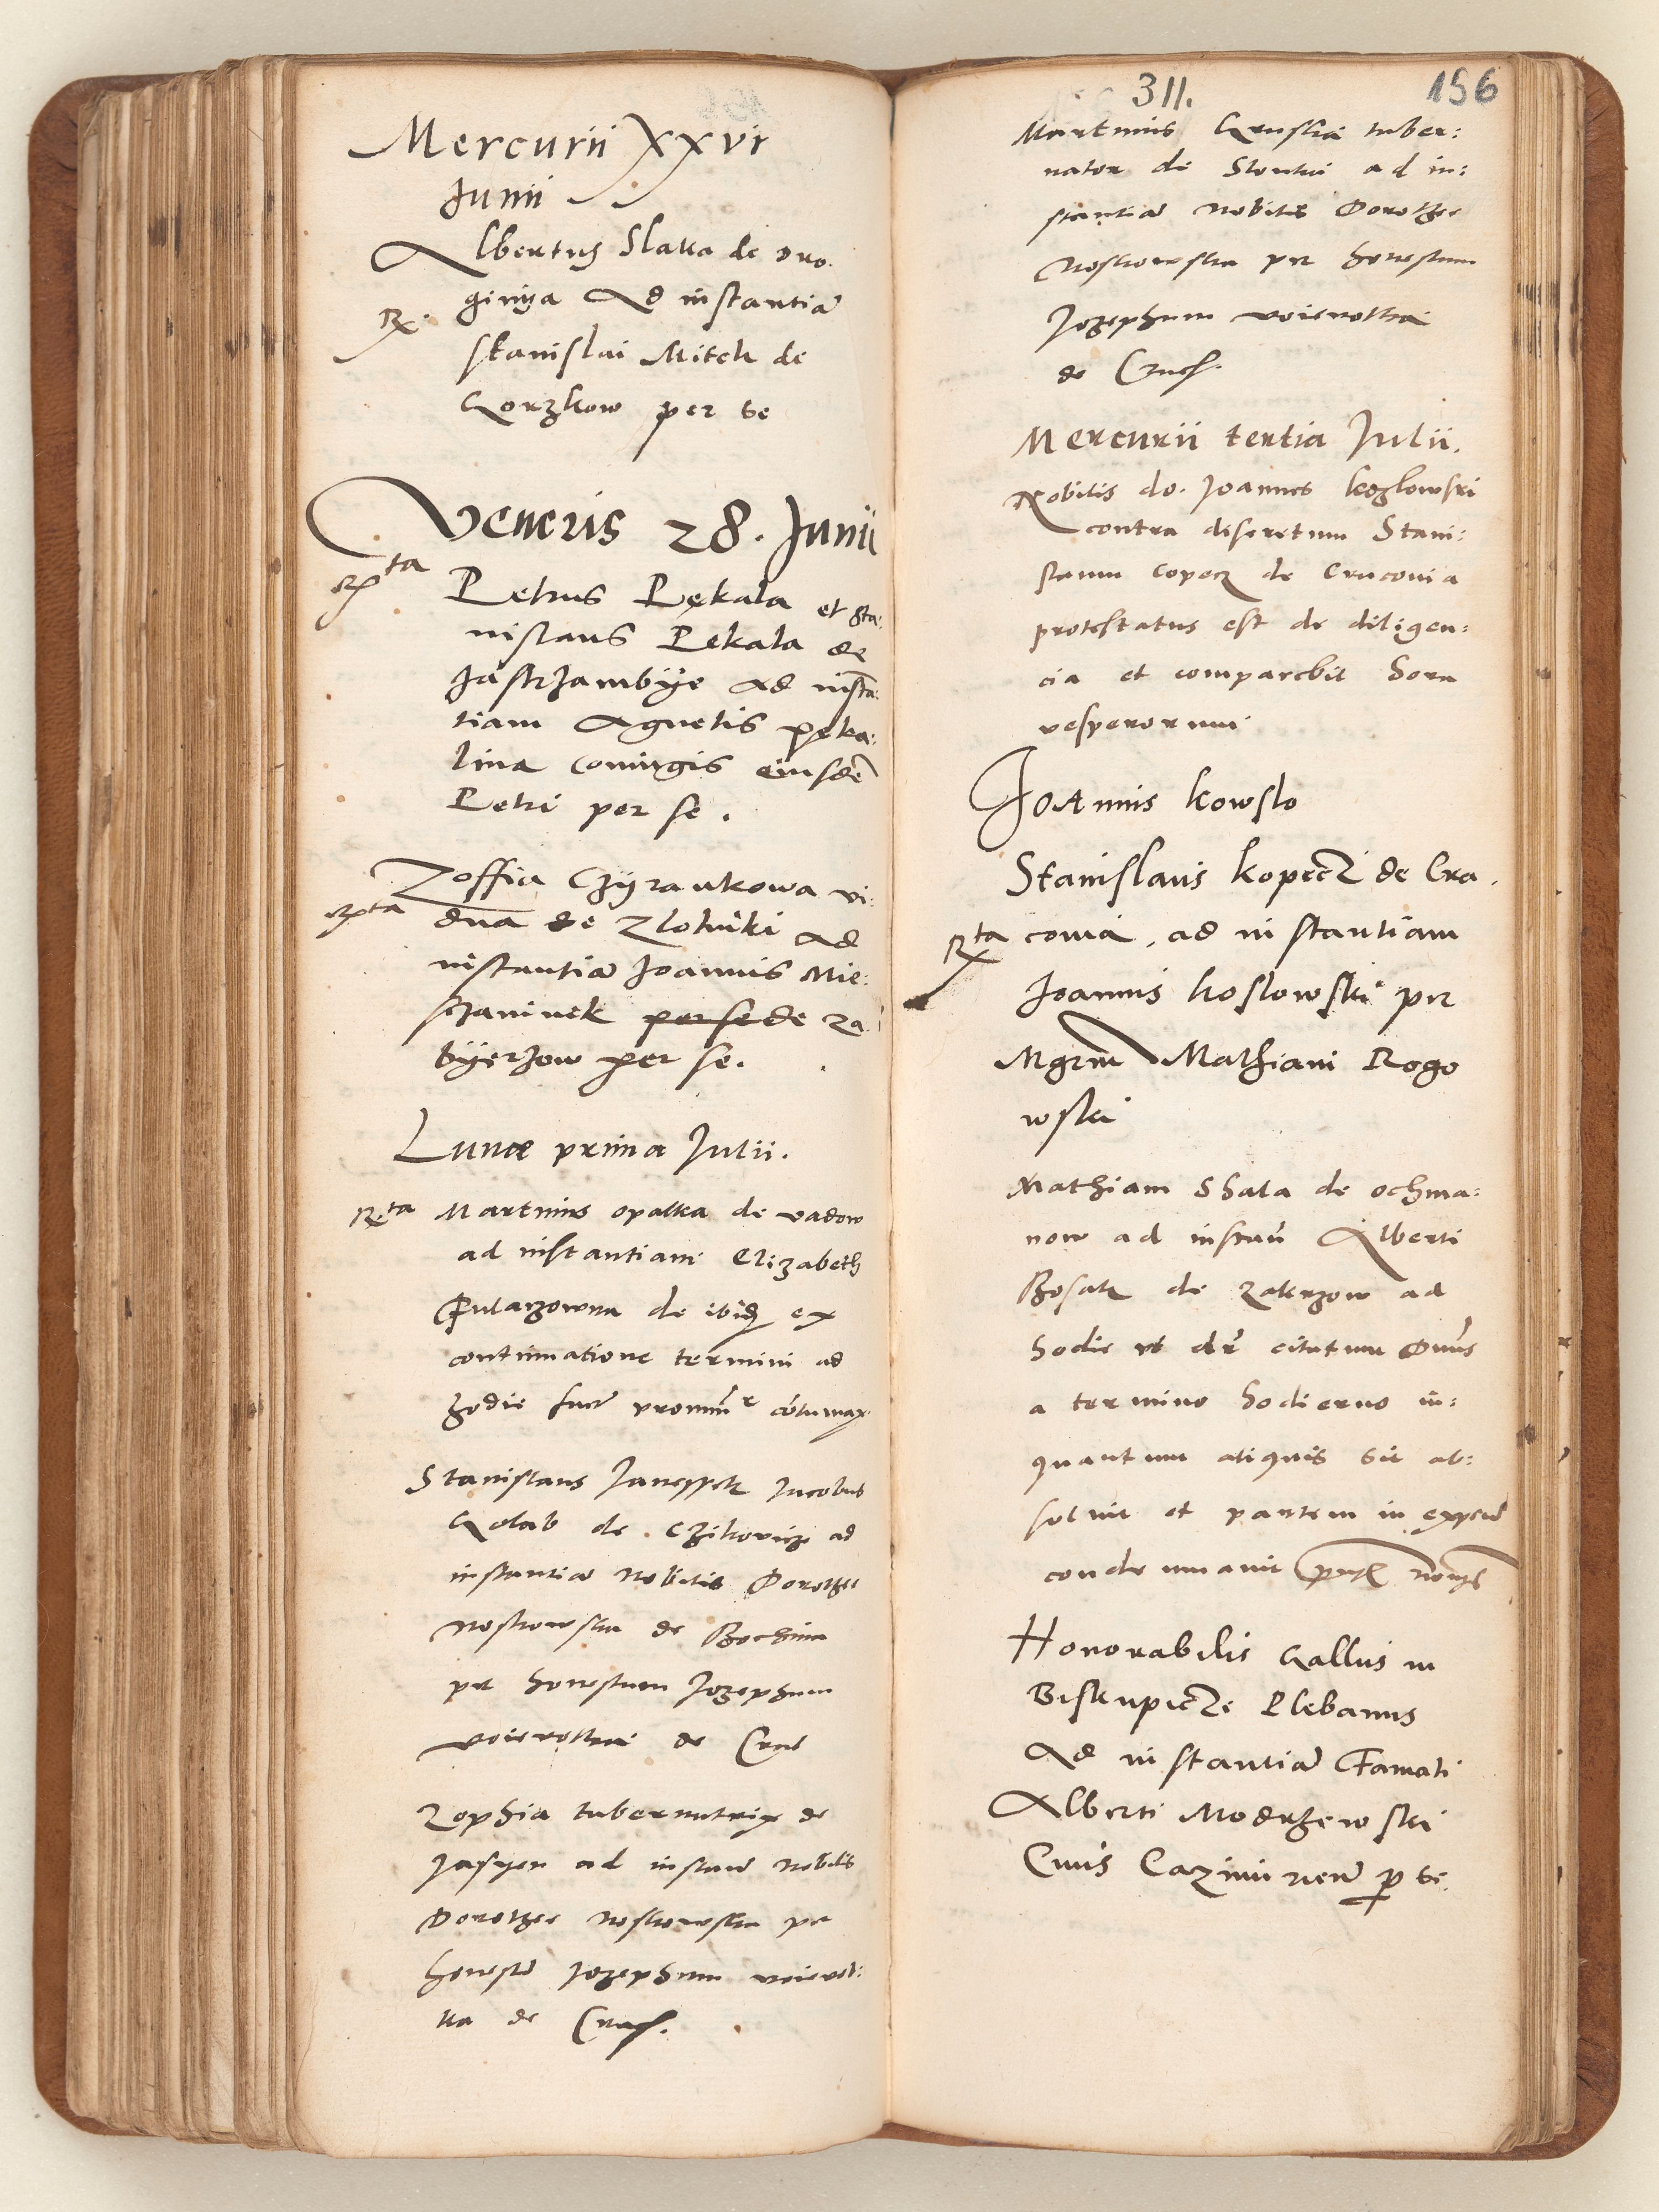 Mercurii XXVI
Junii
Albertus Slatka de Dro.
giniya Ad instantiã
Rx.
Stanislai Mitek de
Gorzkow per se
Veneris 28. Junii
Rta
Petrus Pekala et Sta:
nislaus Pekala de
Jastrzambÿe ad insta:
tiam Agnetis peka:
lina coniugis eiusdẽ
Petri per se.
Zoffia Czyrankowa vi:
Rxta
dua de Zlotniki ad
instantiã Joannis Mie:
sczaninek per se de Za
bÿerzow per se.
Lunæ prima Julii.
Rta Martinus opalka de vadow
ad instantiam Elizabeth
de ibid ex
continuatione termini ad
hodie contumax
Stanislaus Jacobus
Golab de ad
instantiã Nobilis Dorothee
de Bochnia
per honestum Jozephum
de Crac
Zophia tabernatrix de
ad instanã Nobilis
Dorothee per
honestũ Jozephum
ka de Crac.
311.
156
Martinus taber:
nator de ad in:
stantiã Nobilis Dorothee
per honestum
Jozephum
de Crac.
Mercurii tertia Julii.
Nobilis do. Joannes Kozlowski
contra discretum Stani:
slaum Copecz de Cracovia
protestatus est de diligen:
cia et comparebit hora
vesperorum
Joannis Kowslo
Stanislaus Kopecz de Cra.
Rta covia, ad instantiam
Joannis Koslowski per
Mgrm Mathiam Rogo
wski
Mathiam Skala de ochma:
now ad instan Alberti
Bosak de Zakrzow ad
hodie ut citatum Dnus
a termino hodierno in:
quantum aliquis sit ab:
soluit et partem in expen
condemnauit
Honorabilis Gallus in
Biskupicze Plebanus
Ad instantiã Famati
Alberti Modrzewski
Ciuis Cazimirien p se